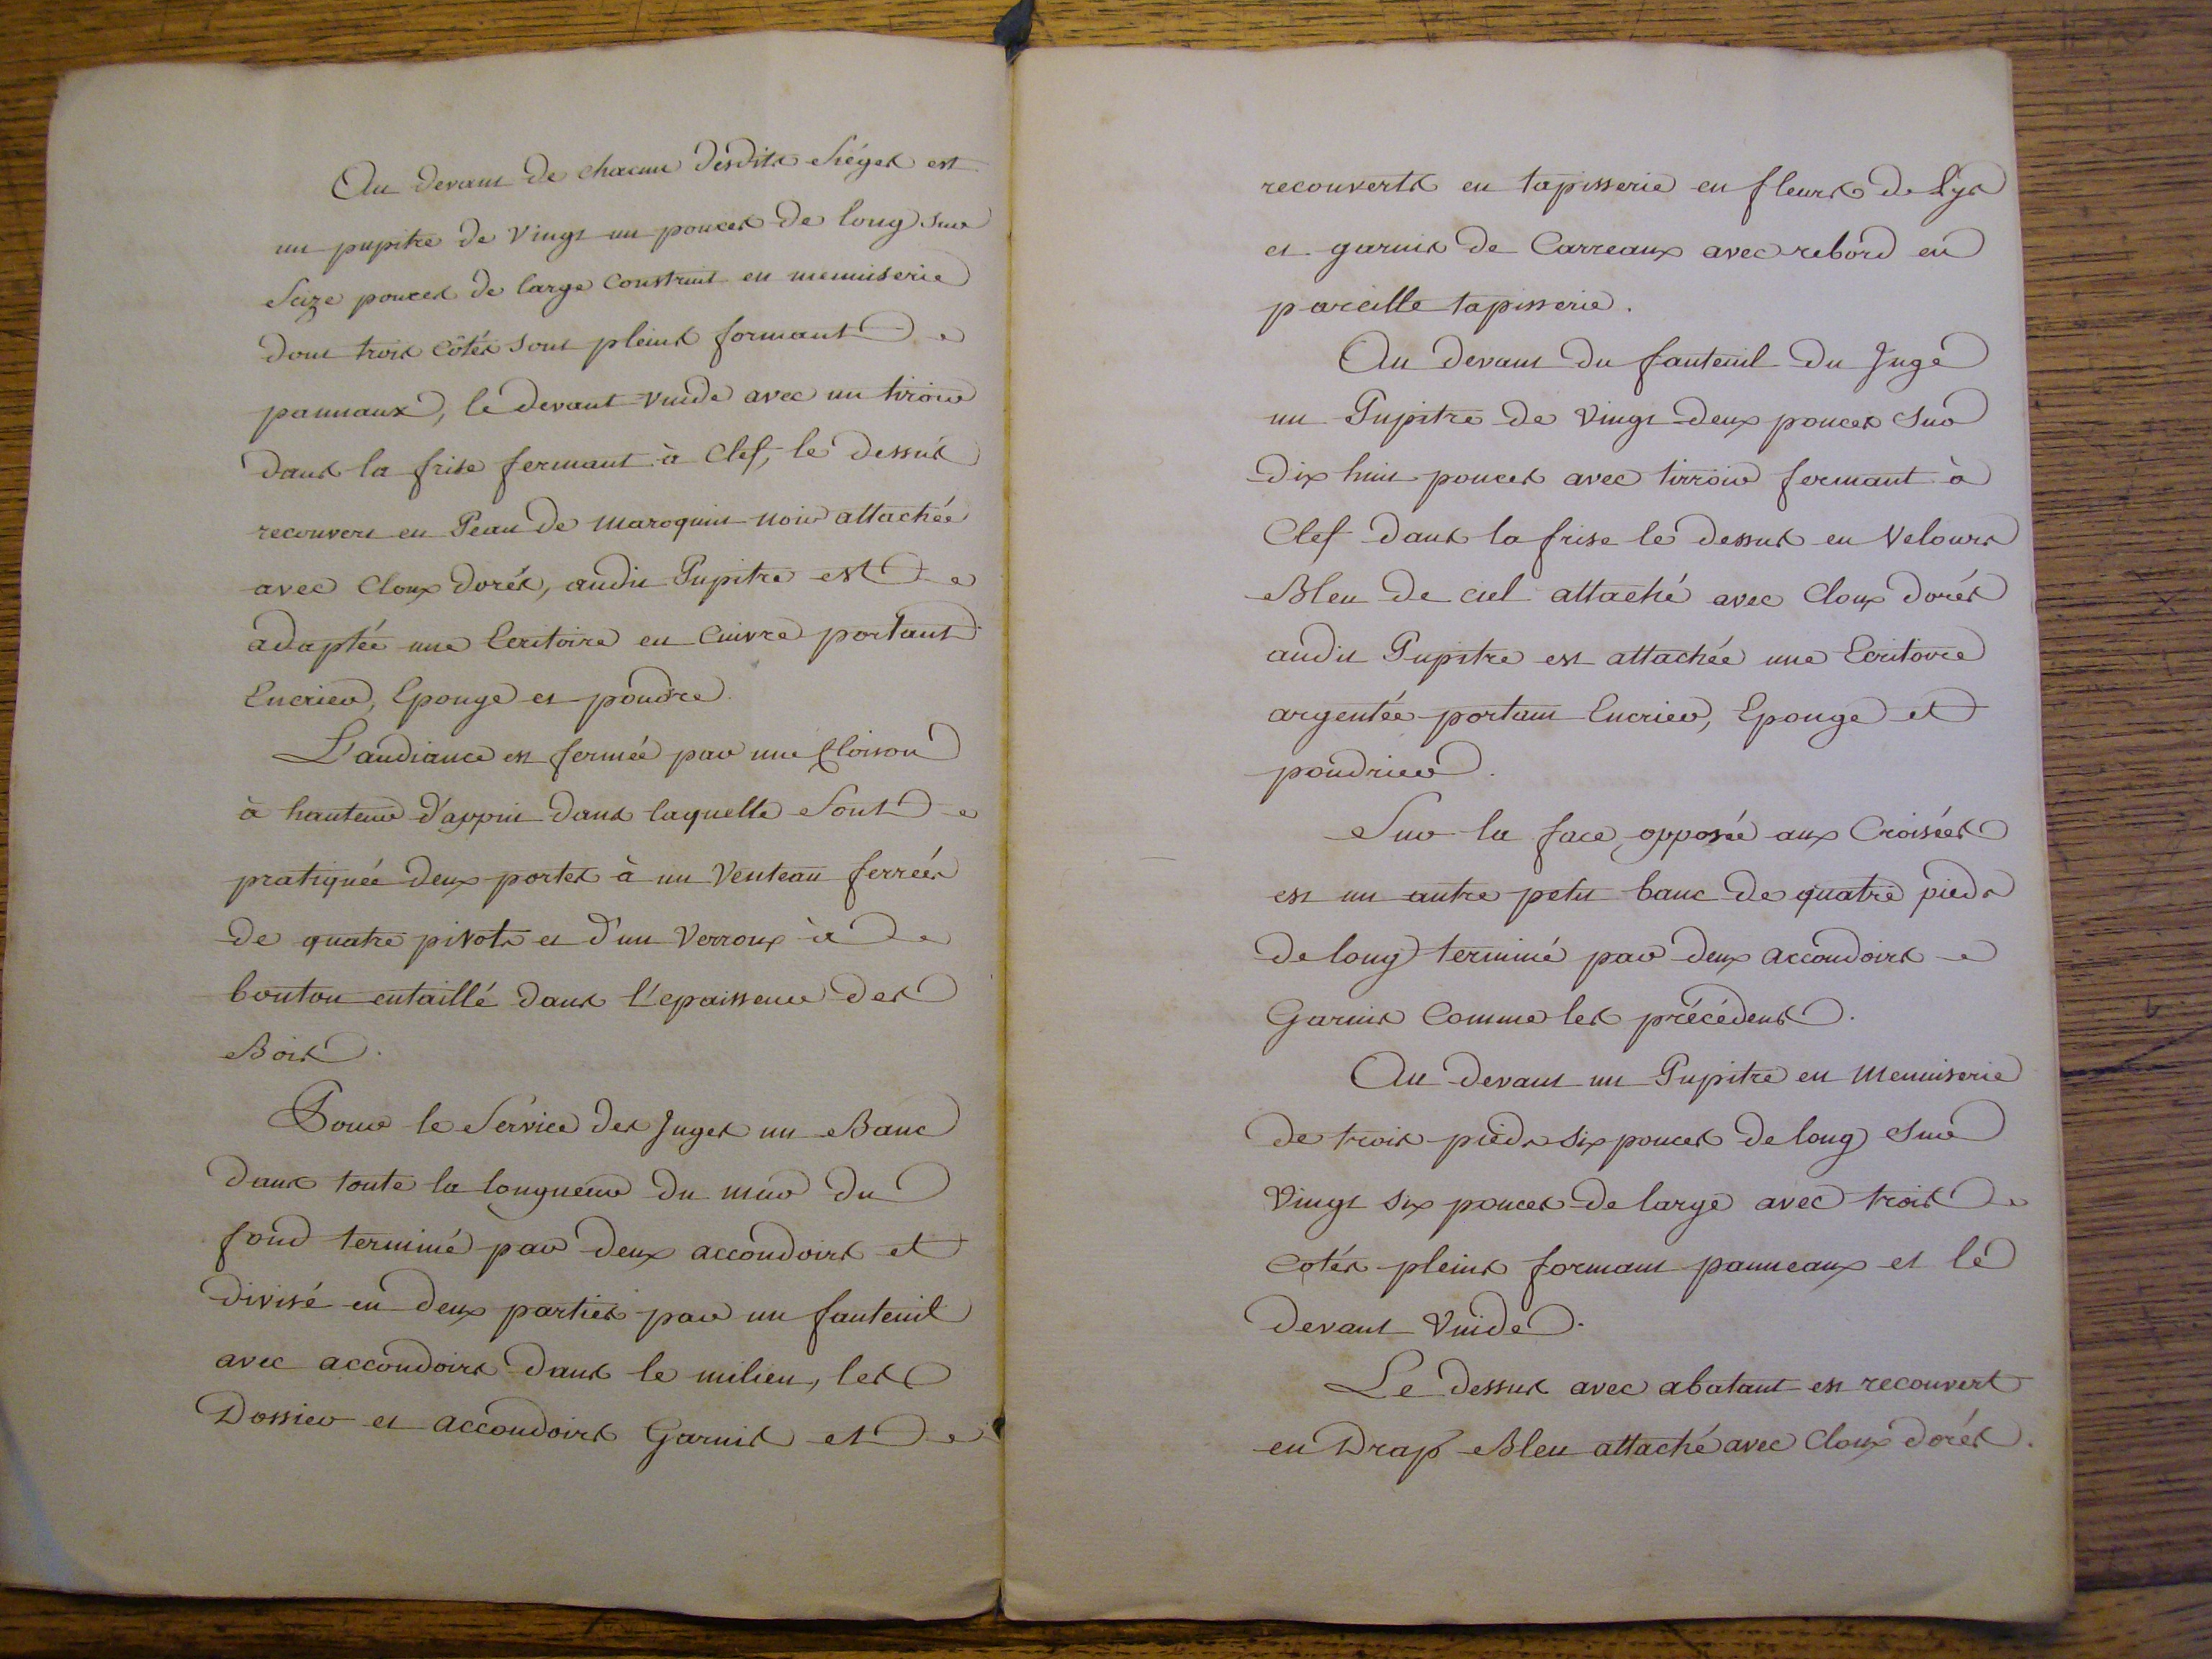 Au devant de chacun desdits Siéges est
un pupitre de Vingt un pouces de long sur
Seize pouces de large Construit en menuiserie
dont trois Côtés sont pleins formant
pannaux, le devant Vuide avec un tiroir
dans la frise fermant à Clef, le dessus
recouvert en Peau de Maroquin noir attachée
avec Cloux dorés, audit Pupitre est
adaptée une Ecritoire en Cuivre portant
Encrier, Eponge et poudre.
L'audiance est fermée par une Cloison
à hauteur d'appui dans laquelle Sont
pratiquée deux portes à un Venteau ferrées
de quatre pivots et d'un Verroux à
bouton entaillé dans l'epaisseur des
Bois.
Pour le Service des Juges un Banc
dans toute la longueur du mur du
fond terminé par deux accoudoirs et
divisé en deux parties par un fauteuil
avec accoudoirs dans le milieu, les
Dossier et accoudoirs Garnis et
recouverts en tapisserie en fleurs de Lys
et garnis de Carreaux avec rebord en
pareille tapisserie.
Au devant du fauteuil du Juge
un Pupitre de Vingt deux pouces Sur
dix huit pouces avec tirroir fermant à
Clef dans la frise le dessus en Velours
Bleu de ciel attaché avec Cloux dorés
audit Pupitre est attachée une Ecritoire
argentée portant Encrier, Eponge et
poudrier.
Sur la face opposée aux Croisées
est un autre petit banc de quatre pieds
de long terminé par deux accoudoirs
Garnis Comme les précédens.
Au devant un Pupitre en Menuiserie
de trois pieds six pouces de long Sur
Vingt six pouces de large avec trois
Cotés pleins formant panneaux et le
devant Vuide.
Le dessus avec abatant est recouvert
en Drap Bleu attaché avec Cloux dorés.